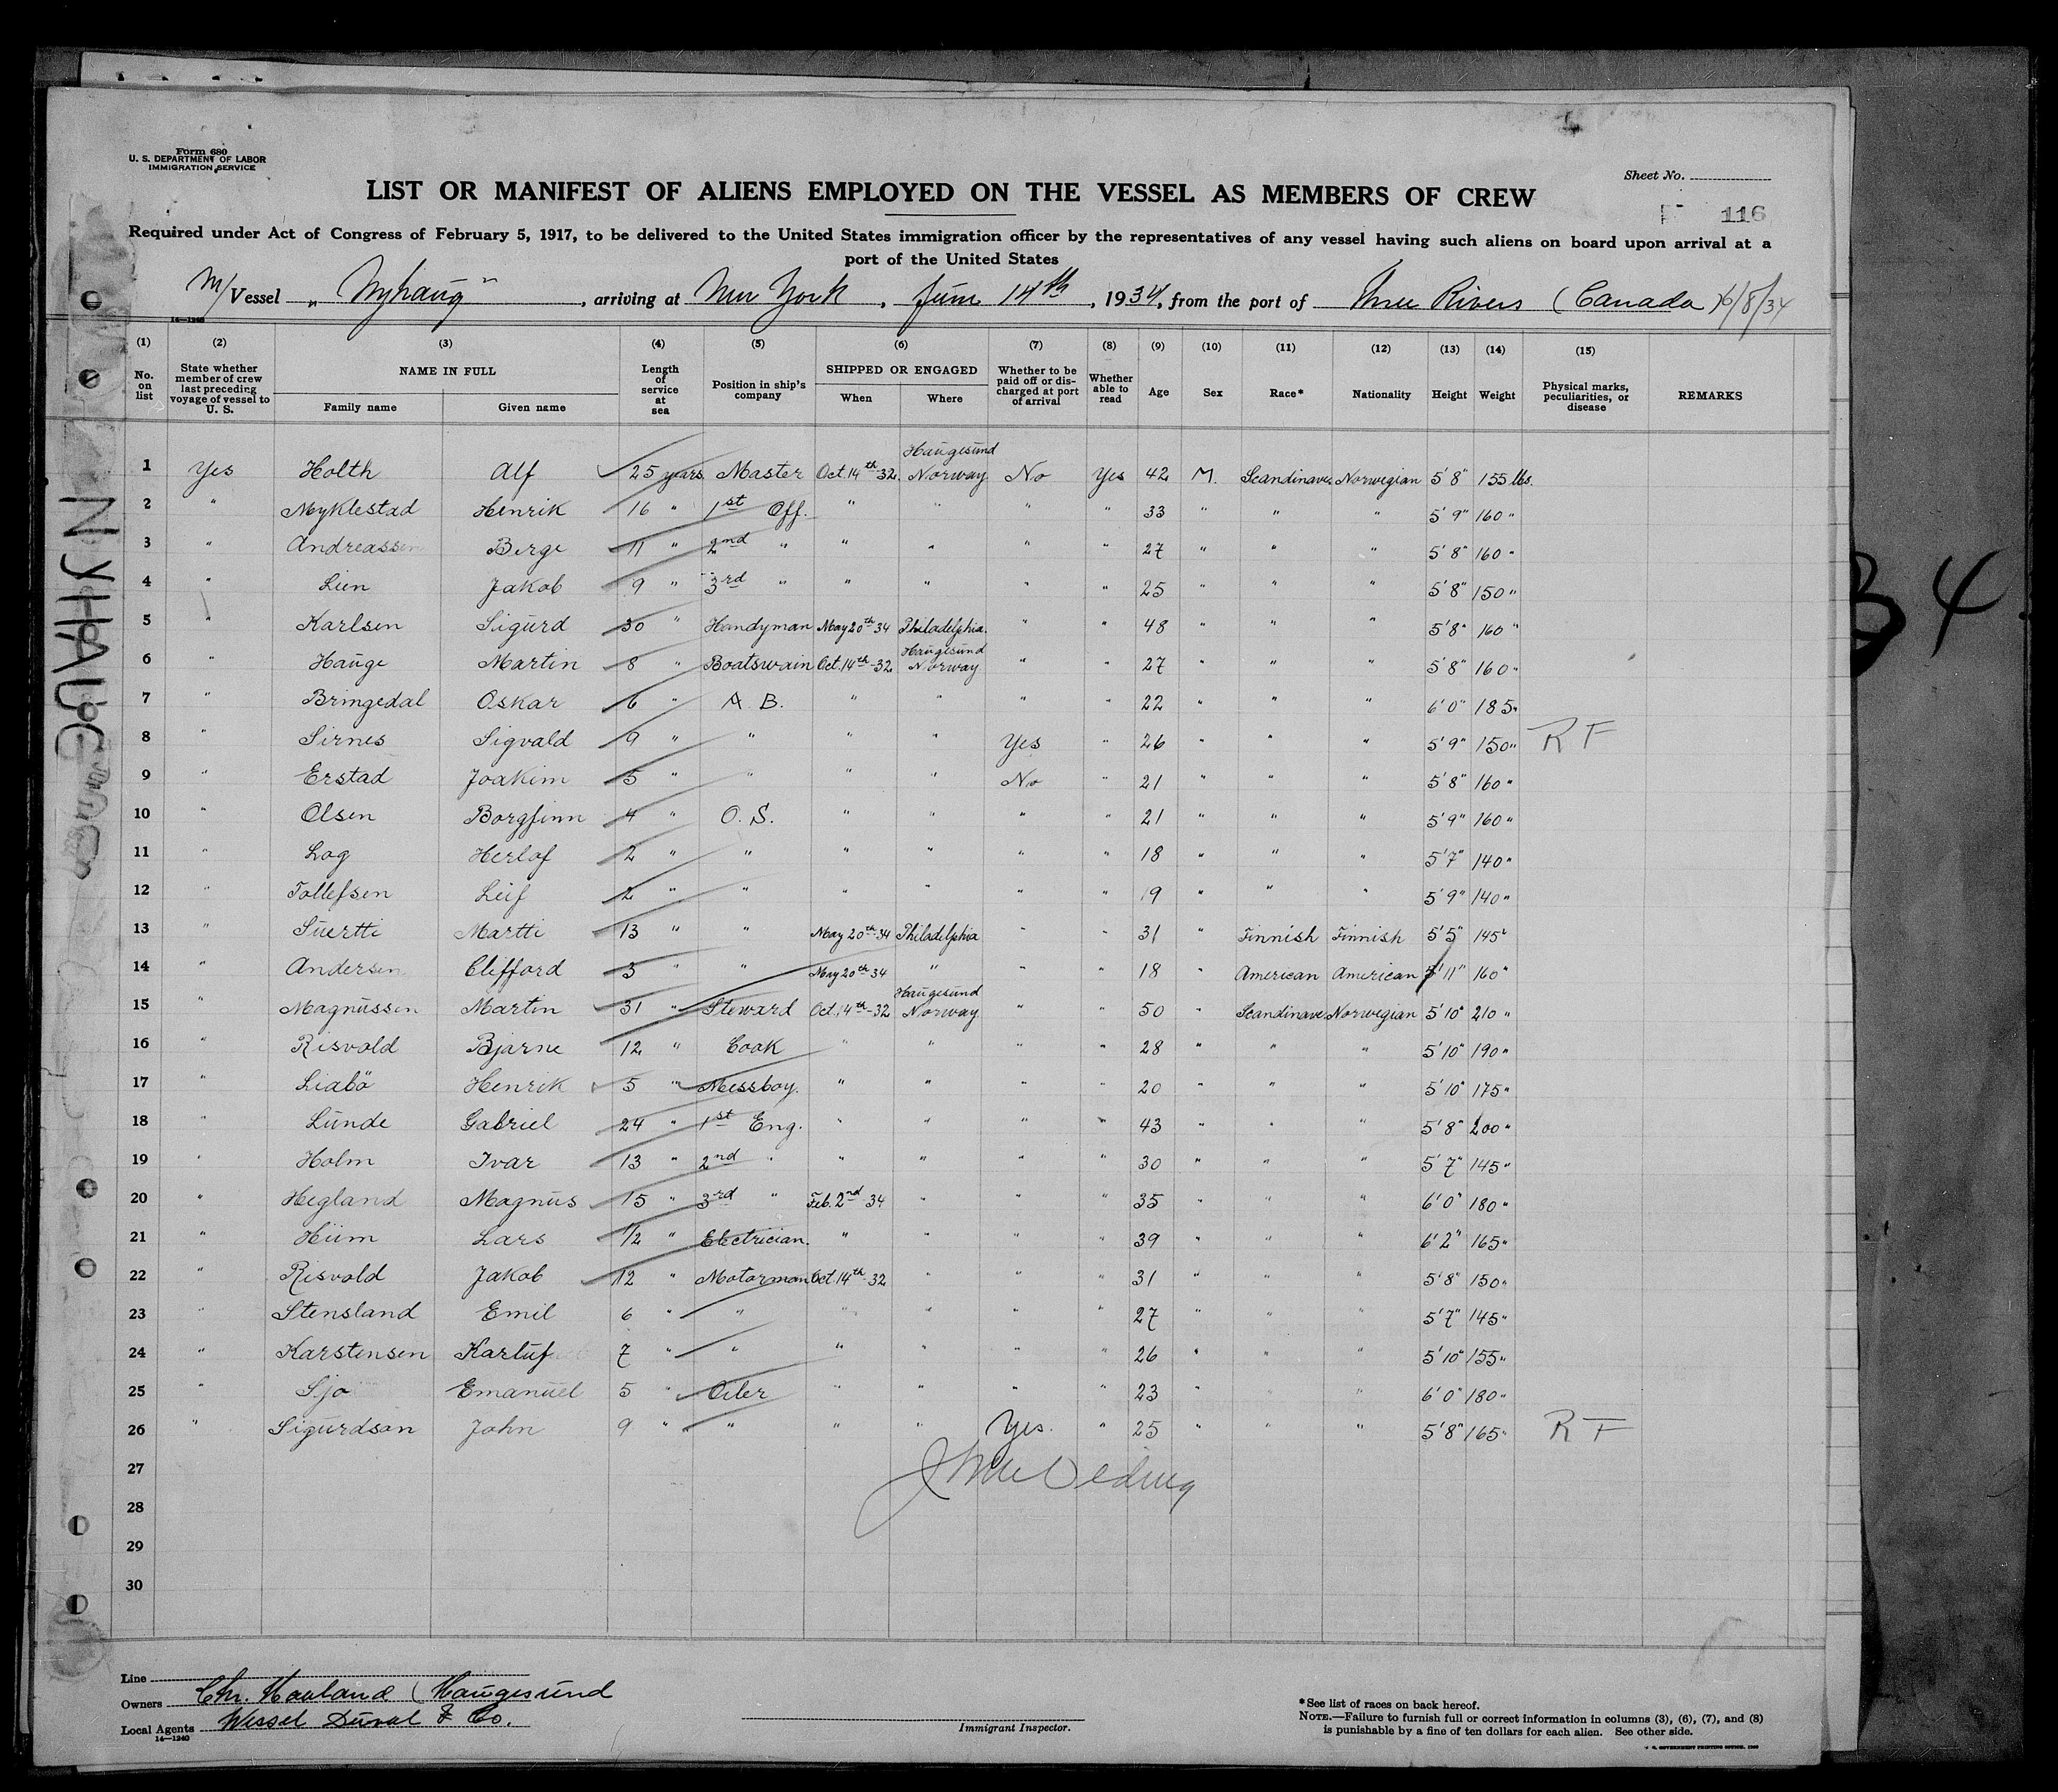 Form 680
U. S. DEPARTMENT OF LABOR
IMMIGRATION SERVICE
Sheet No.
LIST OR MANIFEST OF ALIENS EMPLOYED ON THE VESSEL AS MEMBERS OF CREW
116
Required under Act of Congress of February 5, 1917, to be delivered to the United States immigration officer by the representatives of any vessel having such aliens on board upon arrival at a
port of the United States
M/Vessel „Nyhaug", arriving at New York, June 14th, 1934, from the port of Three Rivers (Canada) 6/8/34
14—1240
(1) (2) (3) (4) (5) (6) (7) (8) (9) (10) (11) (12) (13) (14) (15)
No. on list
State whether member of crew last preceding voyage of vessel to U. S.
NAME IN FULL
Family name Given name
Length of service at sea
Position in ship's company
SHIPPED OR ENGAGED
When Where
Whether to be paid off or discharged at port of arrival
Whether able to read
Age Sex Race* Nationality Height Weight
Physical marks, peculiarities, or disease
REMARKS
1 Yes Holth Alf 25 years Master Oct. 14th-32 Haugesund Norway No Yes 42 M. Scandinave Norwegian 5'8" 155 lbs.
2 " Myklestad Henrik 16 " 1st Off. " " " " 33 " " " 5'9" 160 "
3 " Andreassen Berge 11 " 2nd " " " " " 27 " " " 5'8" 160 "
4 " Lien Jakob 9 " 3rd " " " " " 25 " " " 5'8" 150 "
5 " Karlsen Sigurd 30 " Handyman May 20th 34 Philadelphia. " " 48 " " " 5'8" 160 "
6 " Hauge Martin 8 " Boatswain Oct. 14th-32 Haugesund Norway " " 27 " " " 5'8" 160 "
7 " Bringedal Oskar 6 " A. B. " " " " 22 " " " 6'0" 185 "
8 " Sirnes Sigvald 9 " " " " Yes " 26 " " " 5'9" 150 " R F
9 " Erstad Joakim 5 " " " " No " 21 " " " 5'8" 160 "
10 " Olsen Borgfinn 4 " O. S. " " " " 21 " " " 5'9" 160 "
11 " Log Herlof 2 " " " " " " 18 " " " 5'7" 140 "
12 " Tollefsen Leif 2 " " " " " " 19 " " " 5'9" 140 "
13 " Suertti Martti 13 " " May 20th-34 Philadelphia " " 31 " Finnish Finnish 5'5" 145 "
14 " Andersen Clifford 3 " " May 20th 34 " " " 18 " American American 5'11" 160 "
15 " Magnussen Martin 31 " Steward Oct. 14th-32 Haugesund Norway " " 50 " Scandinave Norwegian 5'10" 210 "
16 " Risvold Bjarne 12 " Cook " " " " 28 " " " 5'10" 190 "
17 " Liabö Henrik 5 " Messboy. " " " " 20 " " " 5'10" 175 "
18 " Lunde Gabriel 24 " 1st Eng. " " " " 43 " " " 5'8" 200 "
19 " Holm Ivar 13 " 2nd " " " " " 30 " " " 5'7" 145 "
20 " Hegland Magnus 15 " 3rd " Feb. 2nd 34 " " " 35 " " " 6'0" 180 "
21 " Lars 1/2 " Electrician. " " " " 39 " " " 6'2" 165 "
22 " Risvold Jakob 12 " Motorman Oct 14th-32 " " " 31 " " " 5'8" 150 "
23 " Stensland Emil 6 " " " " " " 27 " " " 5'7" 145 "
24 " Karstensen Karluf 7 " " " " " " 26 " " " 5'10" 155 "
25 " Sjo Emanuel 5 " Oiler " " " " 23 " " " 6'0" 180 "
26 " Sigurdson John 9 " " " " Yes. " 25 " " " 5'8" 165 " R F
27
28
29
30
NYHAUG
34
Line
Owners Chr. Haaland (Haugesund
Local Agents Wessel Duval & Co.
14—1240
Immigrant Inspector.
*See list of races on back hereof.
NOTE.—Failure to furnish full or correct information in columns (3), (6), (7), and (8)
is punishable by a fine of ten dollars for each alien. See other side.